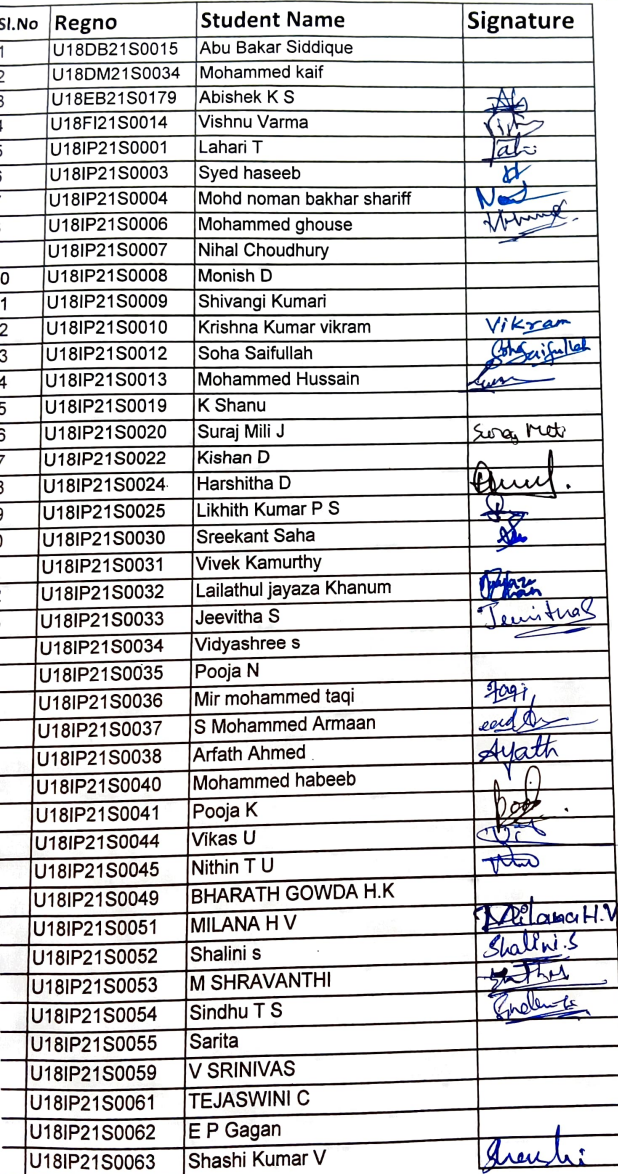 Sl.No Regno Student Name Signature
1 U18DB21S0015 Abu Bakar Siddique
2 U18DM21S0034 Mohammed kaif
3 U18EB21S0179 Abishek K S
4 U18FI21S0014 Vishnu Varma
5 U18IP21S0001 Lahari T
6 U18IP21S0003 Syed haseeb
U18IP21S0004 Mohd noman bakhar shariff
U18IP21S0006 Mohammed ghouse
U18IP21S0007 Nihal Choudhury
0 U18IP21S0008 Monish D
1 U18IP21S0009 Shivangi Kumari
2 U18IP21S0010 Krishna Kumar vikram Vikram
3 U18IP21S0012 Soha Saifullah Soha Saifullah
4 U18IP21S0013 Mohammed Hussain
5 U18IP21S0019 K Shanu
6 U18IP21S0020 Suraj Mili J
7 U18IP21S0022 Kishan D
3 U18IP21S0024 Harshitha D
9 U18IP21S0025 Likhith Kumar P S
0 U18IP21S0030 Sreekant Saha
U18IP21S0031 Vivek Kamurthy
U18IP21S0032 Lailathul jayaza Khanum
U18IP21S0033 Jeevitha S
U18IP21S0034 Vidyashree s
U18IP21S0035 Pooja N
U18IP21S0036 Mir mohammed taqi Taqi
U18IP21S0037 S Mohammed Armaan
U18IP21S0038 Arfath Ahmed
U18IP21S0040 Mohammed habeeb
U18IP21S0041 Pooja K
U18IP21S0044 Vikas U
U18IP21S0045 Nithin T U
U18IP21S0049 BHARATH GOWDA H.K
U18IP21S0051 MILANA H V Milana H.V
U18IP21S0052 Shalini s Shalini.S
U18IP21S0053 M SHRAVANTHI
U18IP21S0054 Sindhu T S
U18IP21S0055 Sarita
U18IP21S0059 V SRINIVAS
U18IP21S0061 TEJASWINI C
U18IP21S0062 E P Gagan
U18IP21S0063 Shashi Kumar V